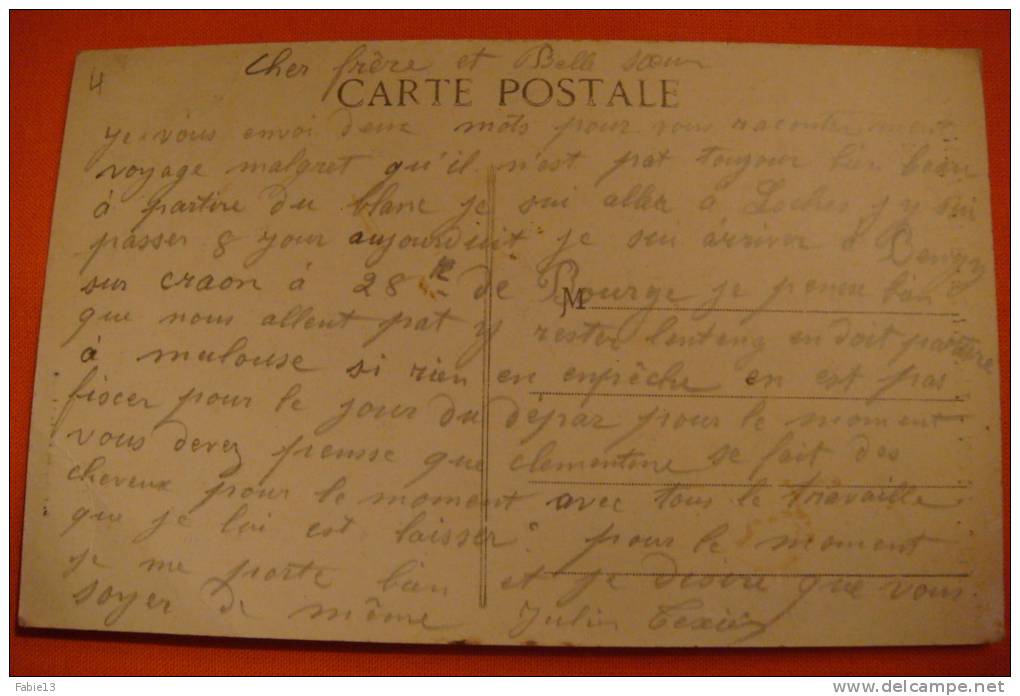 4
Cher frère et Belle sœur
CARTE POSTALE
je vous envoi deux mots pour vous raconter mont
voyage malgret qu'il n'est pat toujour bien beau
à partire du blanc je sui aller à Loches j'y sui
passer 8 jour aujourduit je sui arriver à Bengy
sur craon à 28 K de Bourge je pense bien
JM
que nous allont pat y rester lonteng en doit partire
à mulouse si rien en enpêche en est pas
fixcer pour le jour du dépar pour le moment
vous devez pensse que clementine se fait des
cheveux pour le moment avec tous le travaille
que je lui est laisser pour le moment
je me porte bien et je desire que vous
soyer de même Julien Texier
Fabie13
delcampe.net